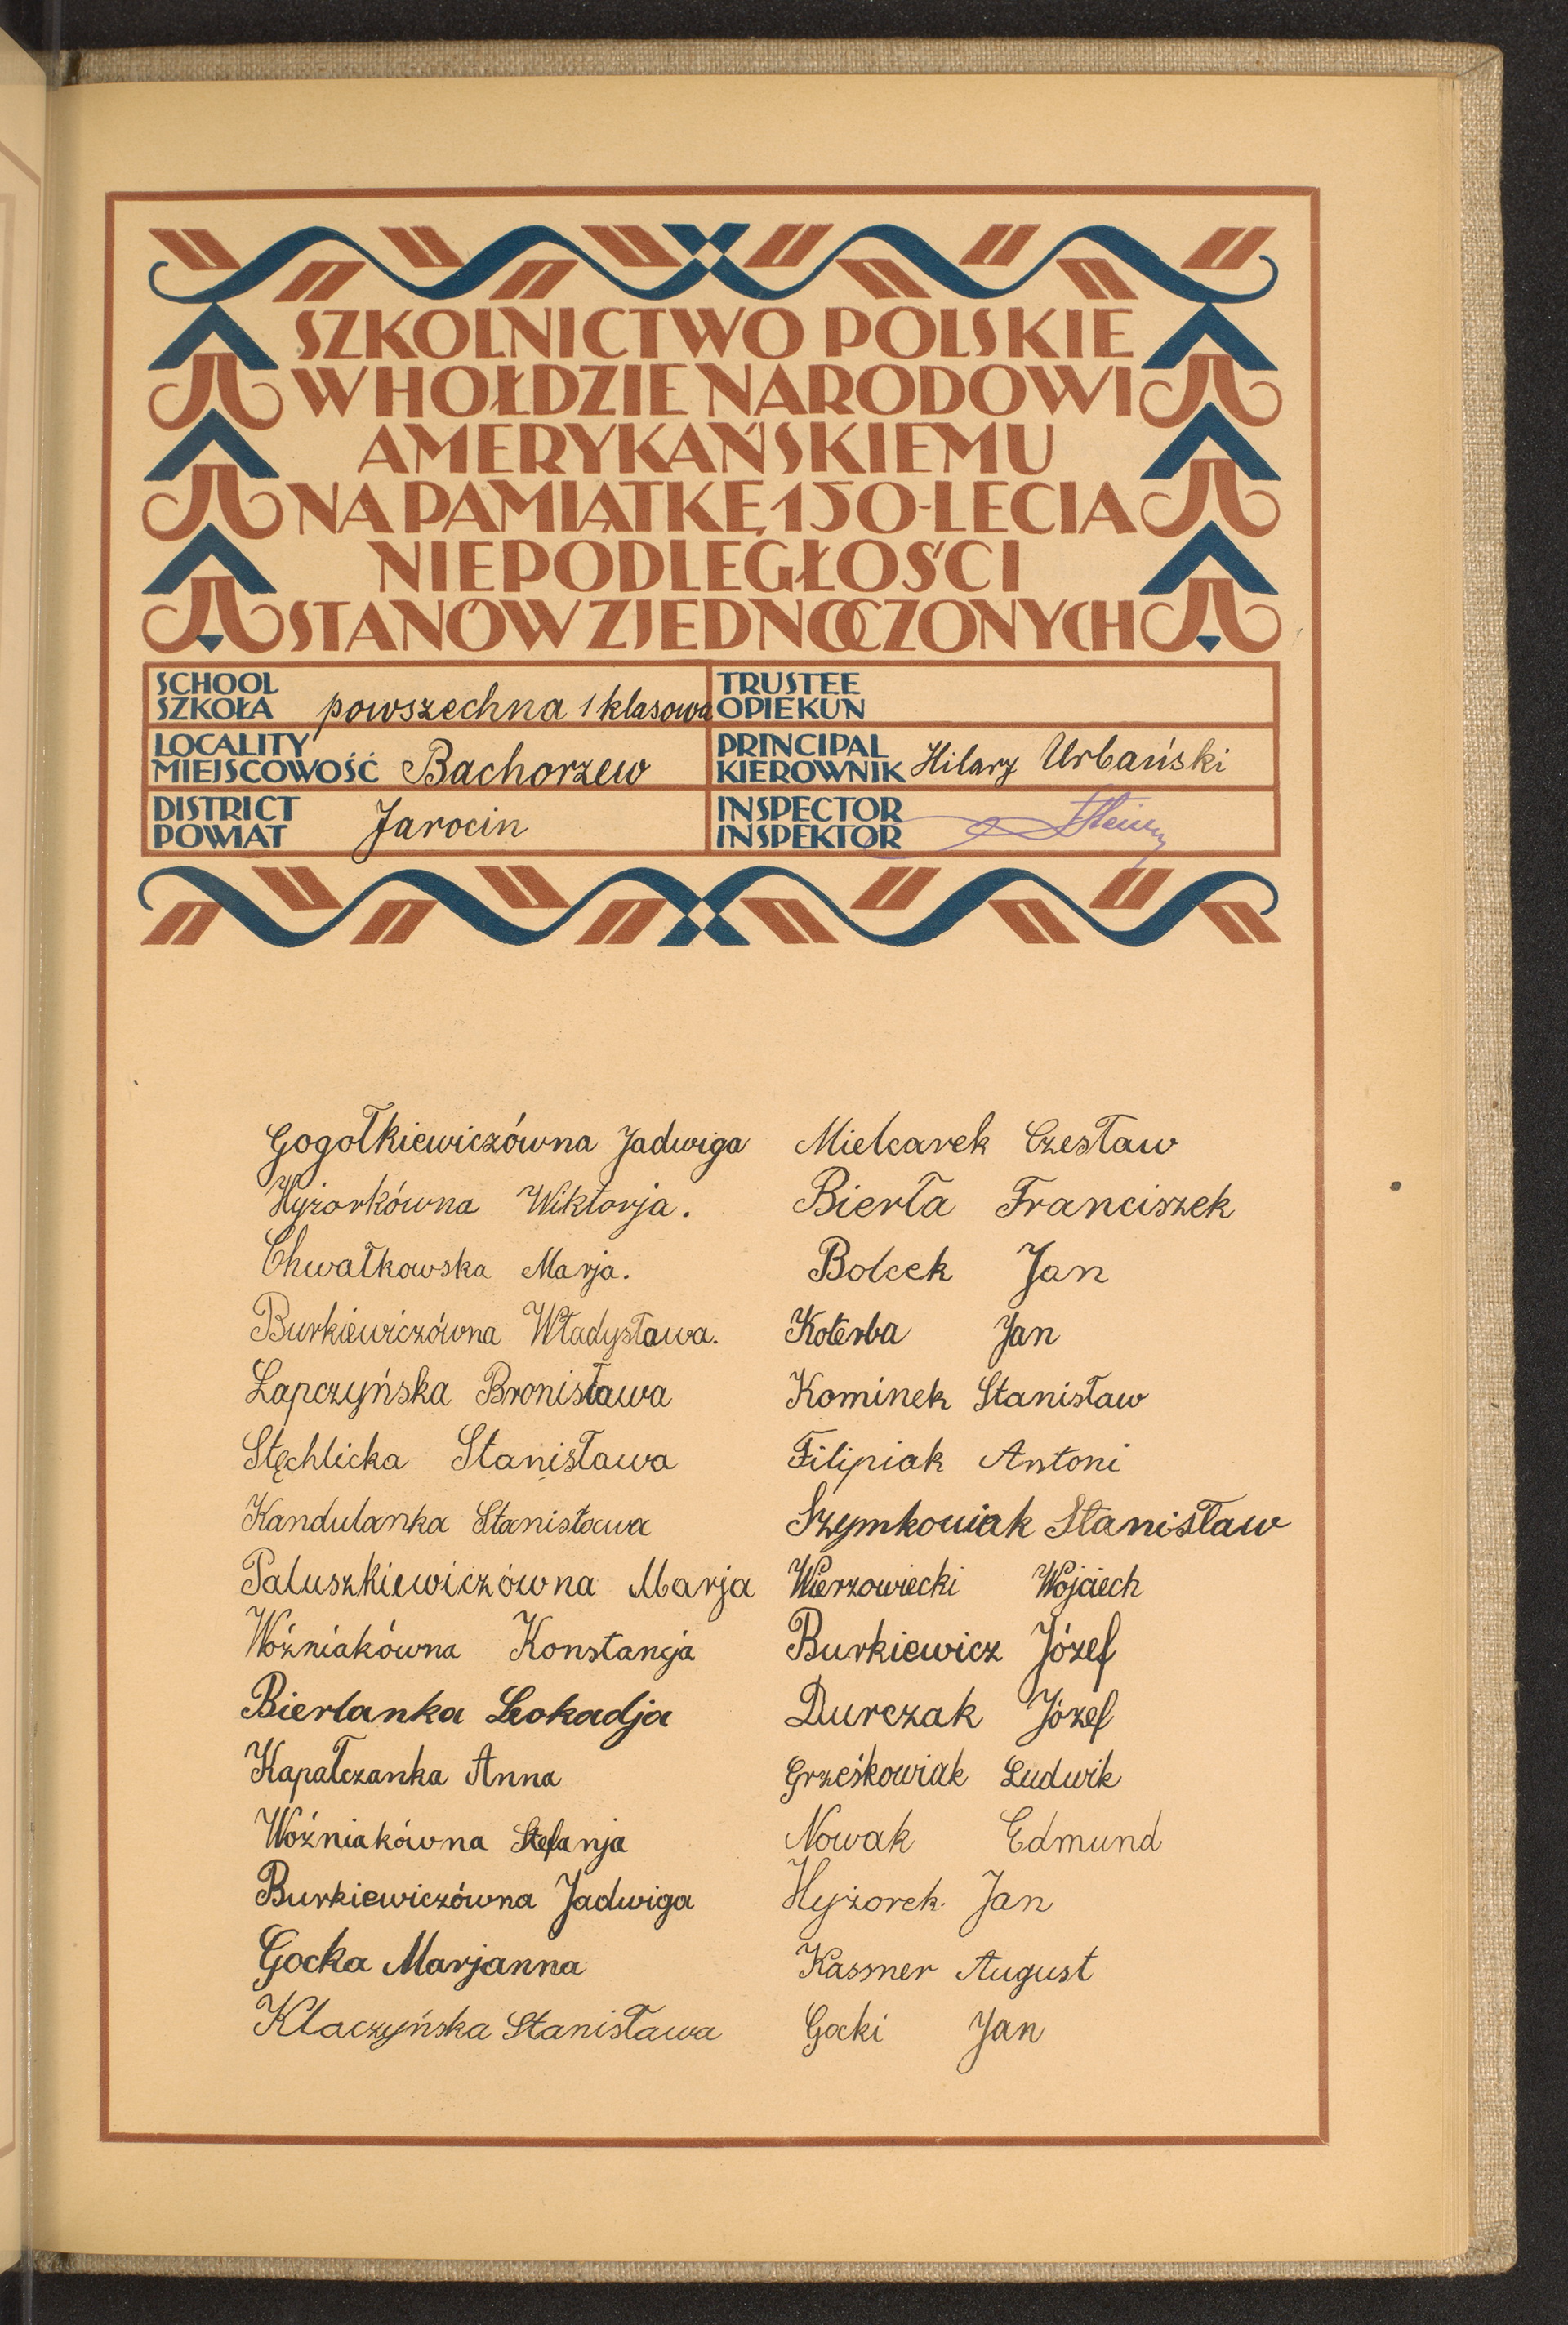 SZKOLNICTWO POLSKIE
W HOŁDZIE NARODOWI
AMERYKAŃSKIEMU
NA PAMIĄTKĘ 150-LECIA
NIEPODLEGŁOŚCI
STANÓW ZJEDNOCZONYCH
SCHOOL
SZKOŁA powszechna 1 klasowa
TRUSTEE
OPIEKUN
LOCALITY
MIEJSCOWOŚĆ Bachorzew
PRINCIPAL
KIEROWNIK Hilary Urbański
DISTRICT
POWIAT Jarocin
INSPECTOR
INSPEKTOR
Gogołkiewiczówna Jadwiga
Hyżorkówna Wiktorja.
Chwałkowska Marja.
Burkiewiczówna Władysława.
Łapczyńska Bronisława
Stęchlicka Stanisława
Kandulanka Stanisława
Paluszkiewiczówna Marja
Woźniakówna Konstancja
Bierlanka Leokadja
Kapałczanka Anna
Woźniakówna Stefanja
Burkiewiczówna Jadwiga
Gocka Marjanna
Klaczyńska Stanisława
Mielcarek Czesław
Bierła Franciszek
Bolcek Jan
Koterba Jan
Kominek Stanisław
Filipiak Antoni
Szymkowiak Stanisław
Wierzowiecki Wojciech
Burkiewicz Józef
Durczak Józef
Grześkowiak Ludwik
Nowak Edmund
Hyżorek Jan
Kassner August
Gocki Jan